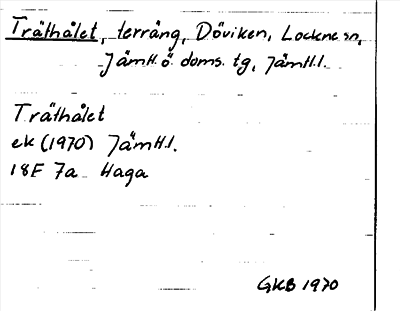 Träthålet, terräng, Döviken, Lockne sn,
Jämtl. ö. doms. tg, Jämtl.
Träthålet
ek (1970) Jämtl.
18F 7a Haga
GKB 1970